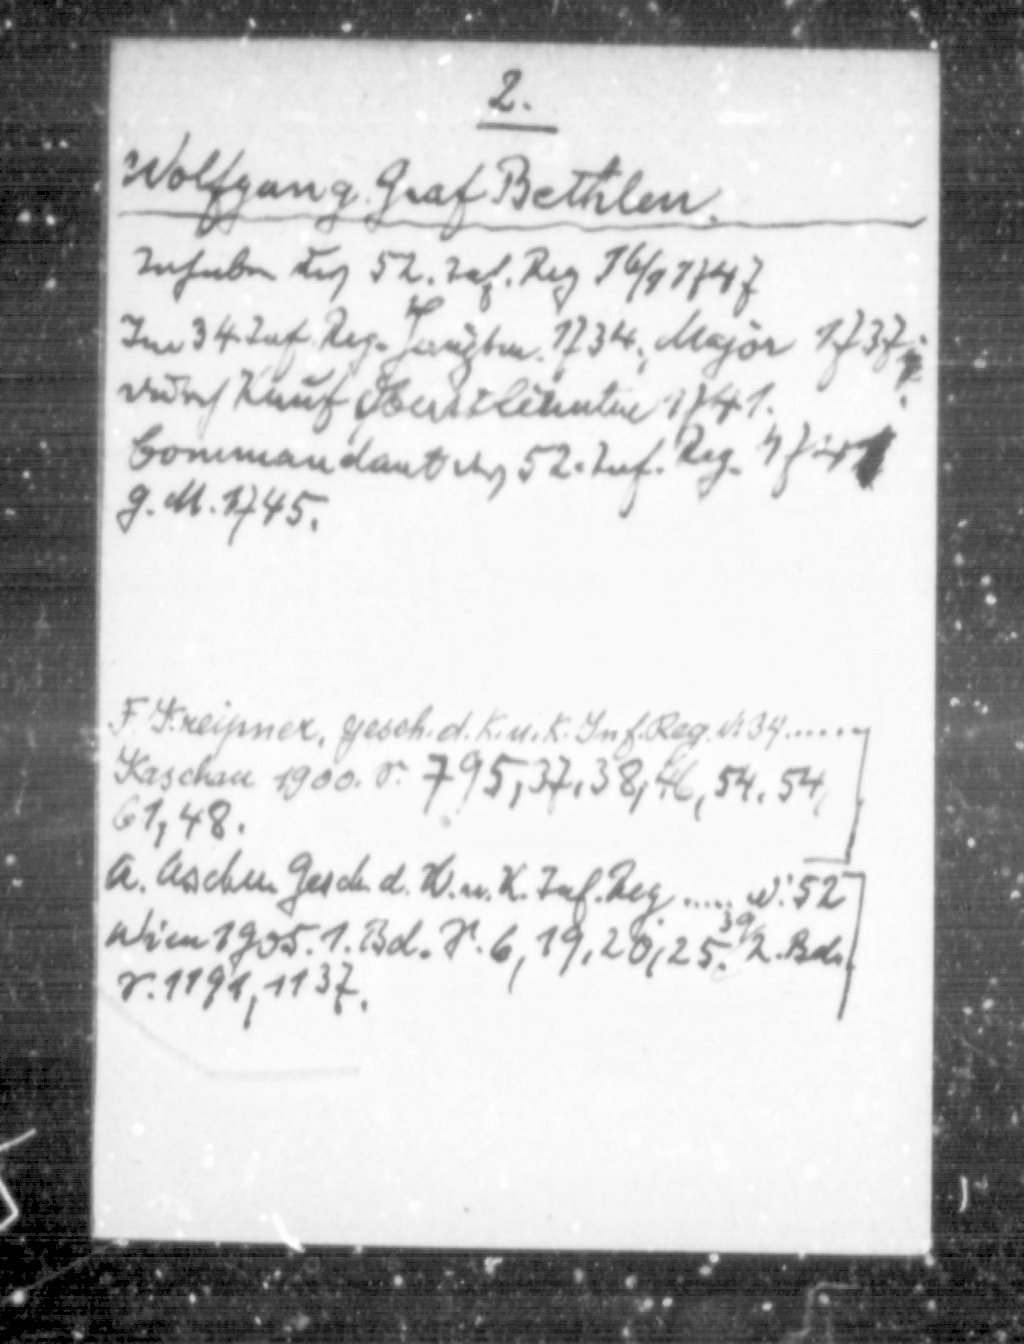 2.
Wolfgang Graf Bethlen.
Inhaber des 52. Inf. Reg 16/9 1747
Im 34 Inf. Reg. Hauptm. 1734, Major 1737;
durch Kauf Oberstleutnten 1741.
Commandant des 52. Inf. Reg. 1741
G. M. 1745.
F. Kreipner, Gesch. d. K. u. K. Inf. Reg. N: 34 ......
Kaschau 1900. S. 795, 37, 38, 46, 54, 54,
61, 48.
A. Ascher Gesch. d. K. u. K. Inf. Reg ..... N: 52
Wien 1905. 1. Bd. S. 6, 19, 20, 25, 39, 2. Bd.
S. 1191, 1137.